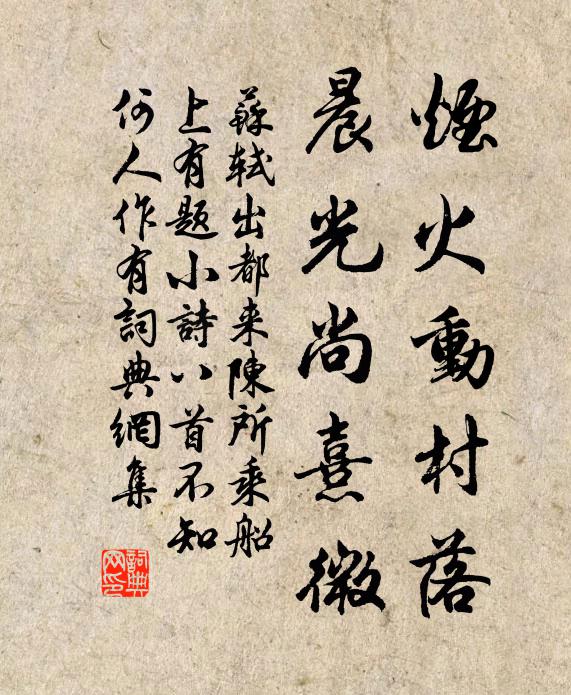 煙火動村落
晨光尚熹微
蘇軾出都来陳所乘船
上有題小詩八首不知
何人作有詞典網集
詞典網印